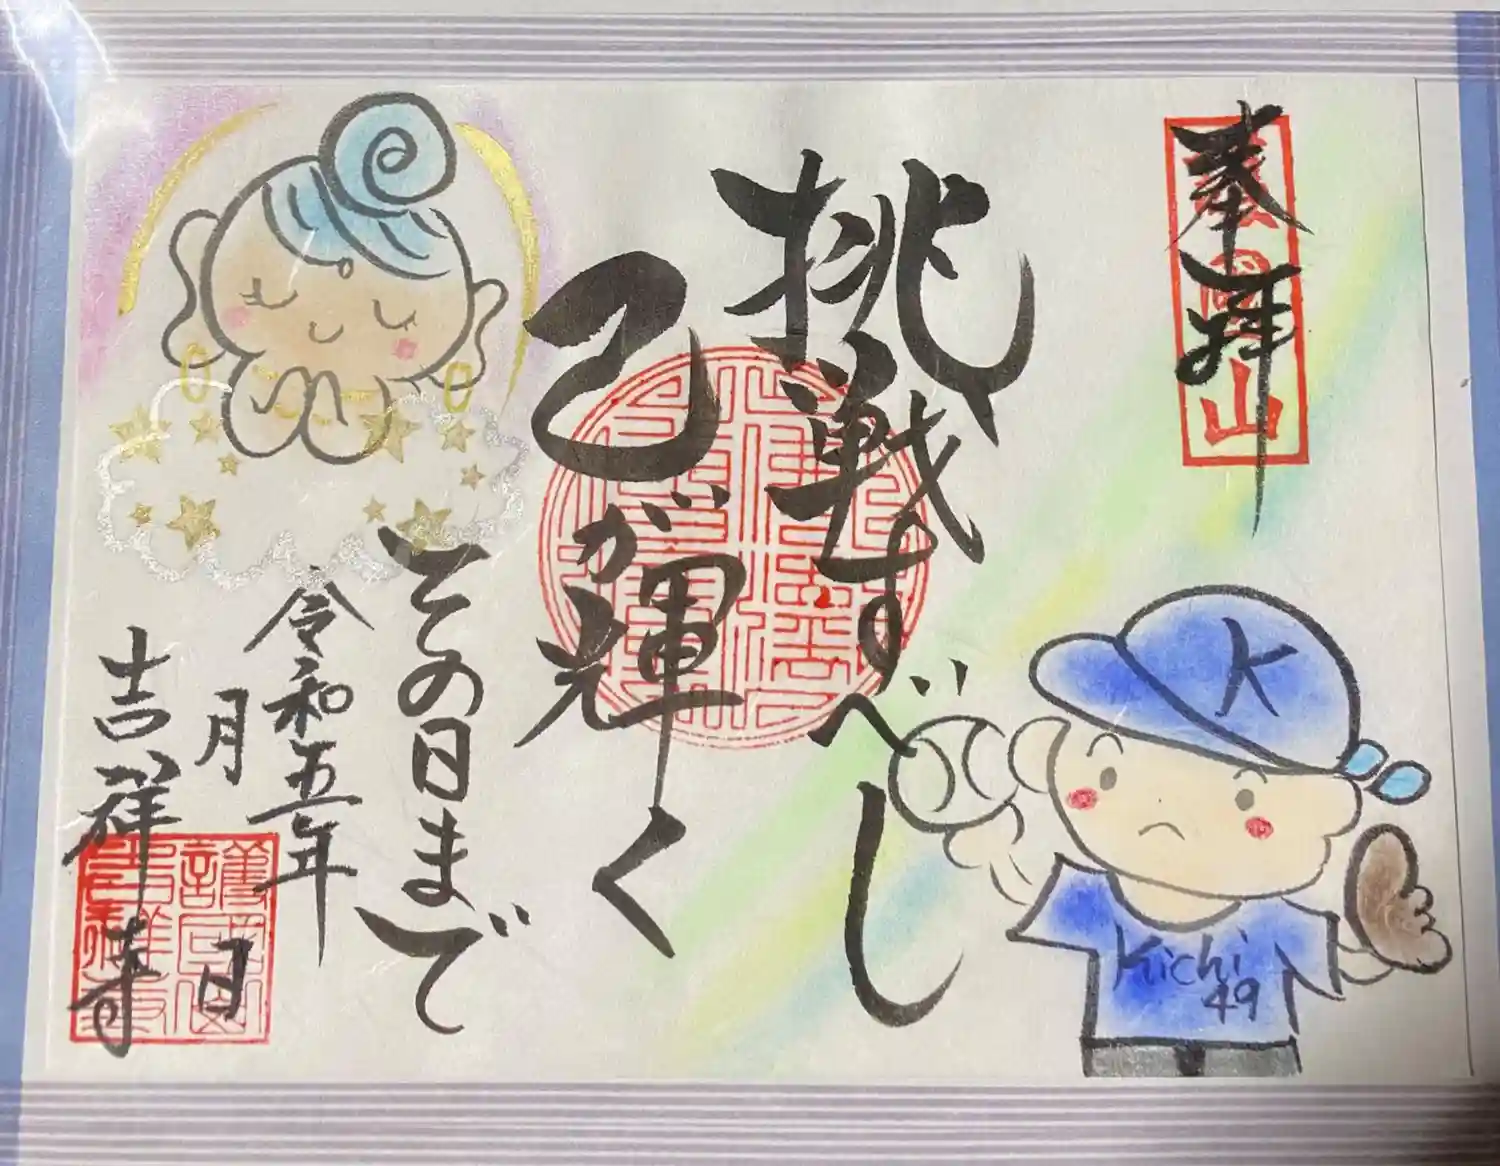 奉拝
挑戦すべし
己が輝く
その日まで
令和五年
月
日
吉祥寺
K
Kichi
49
山